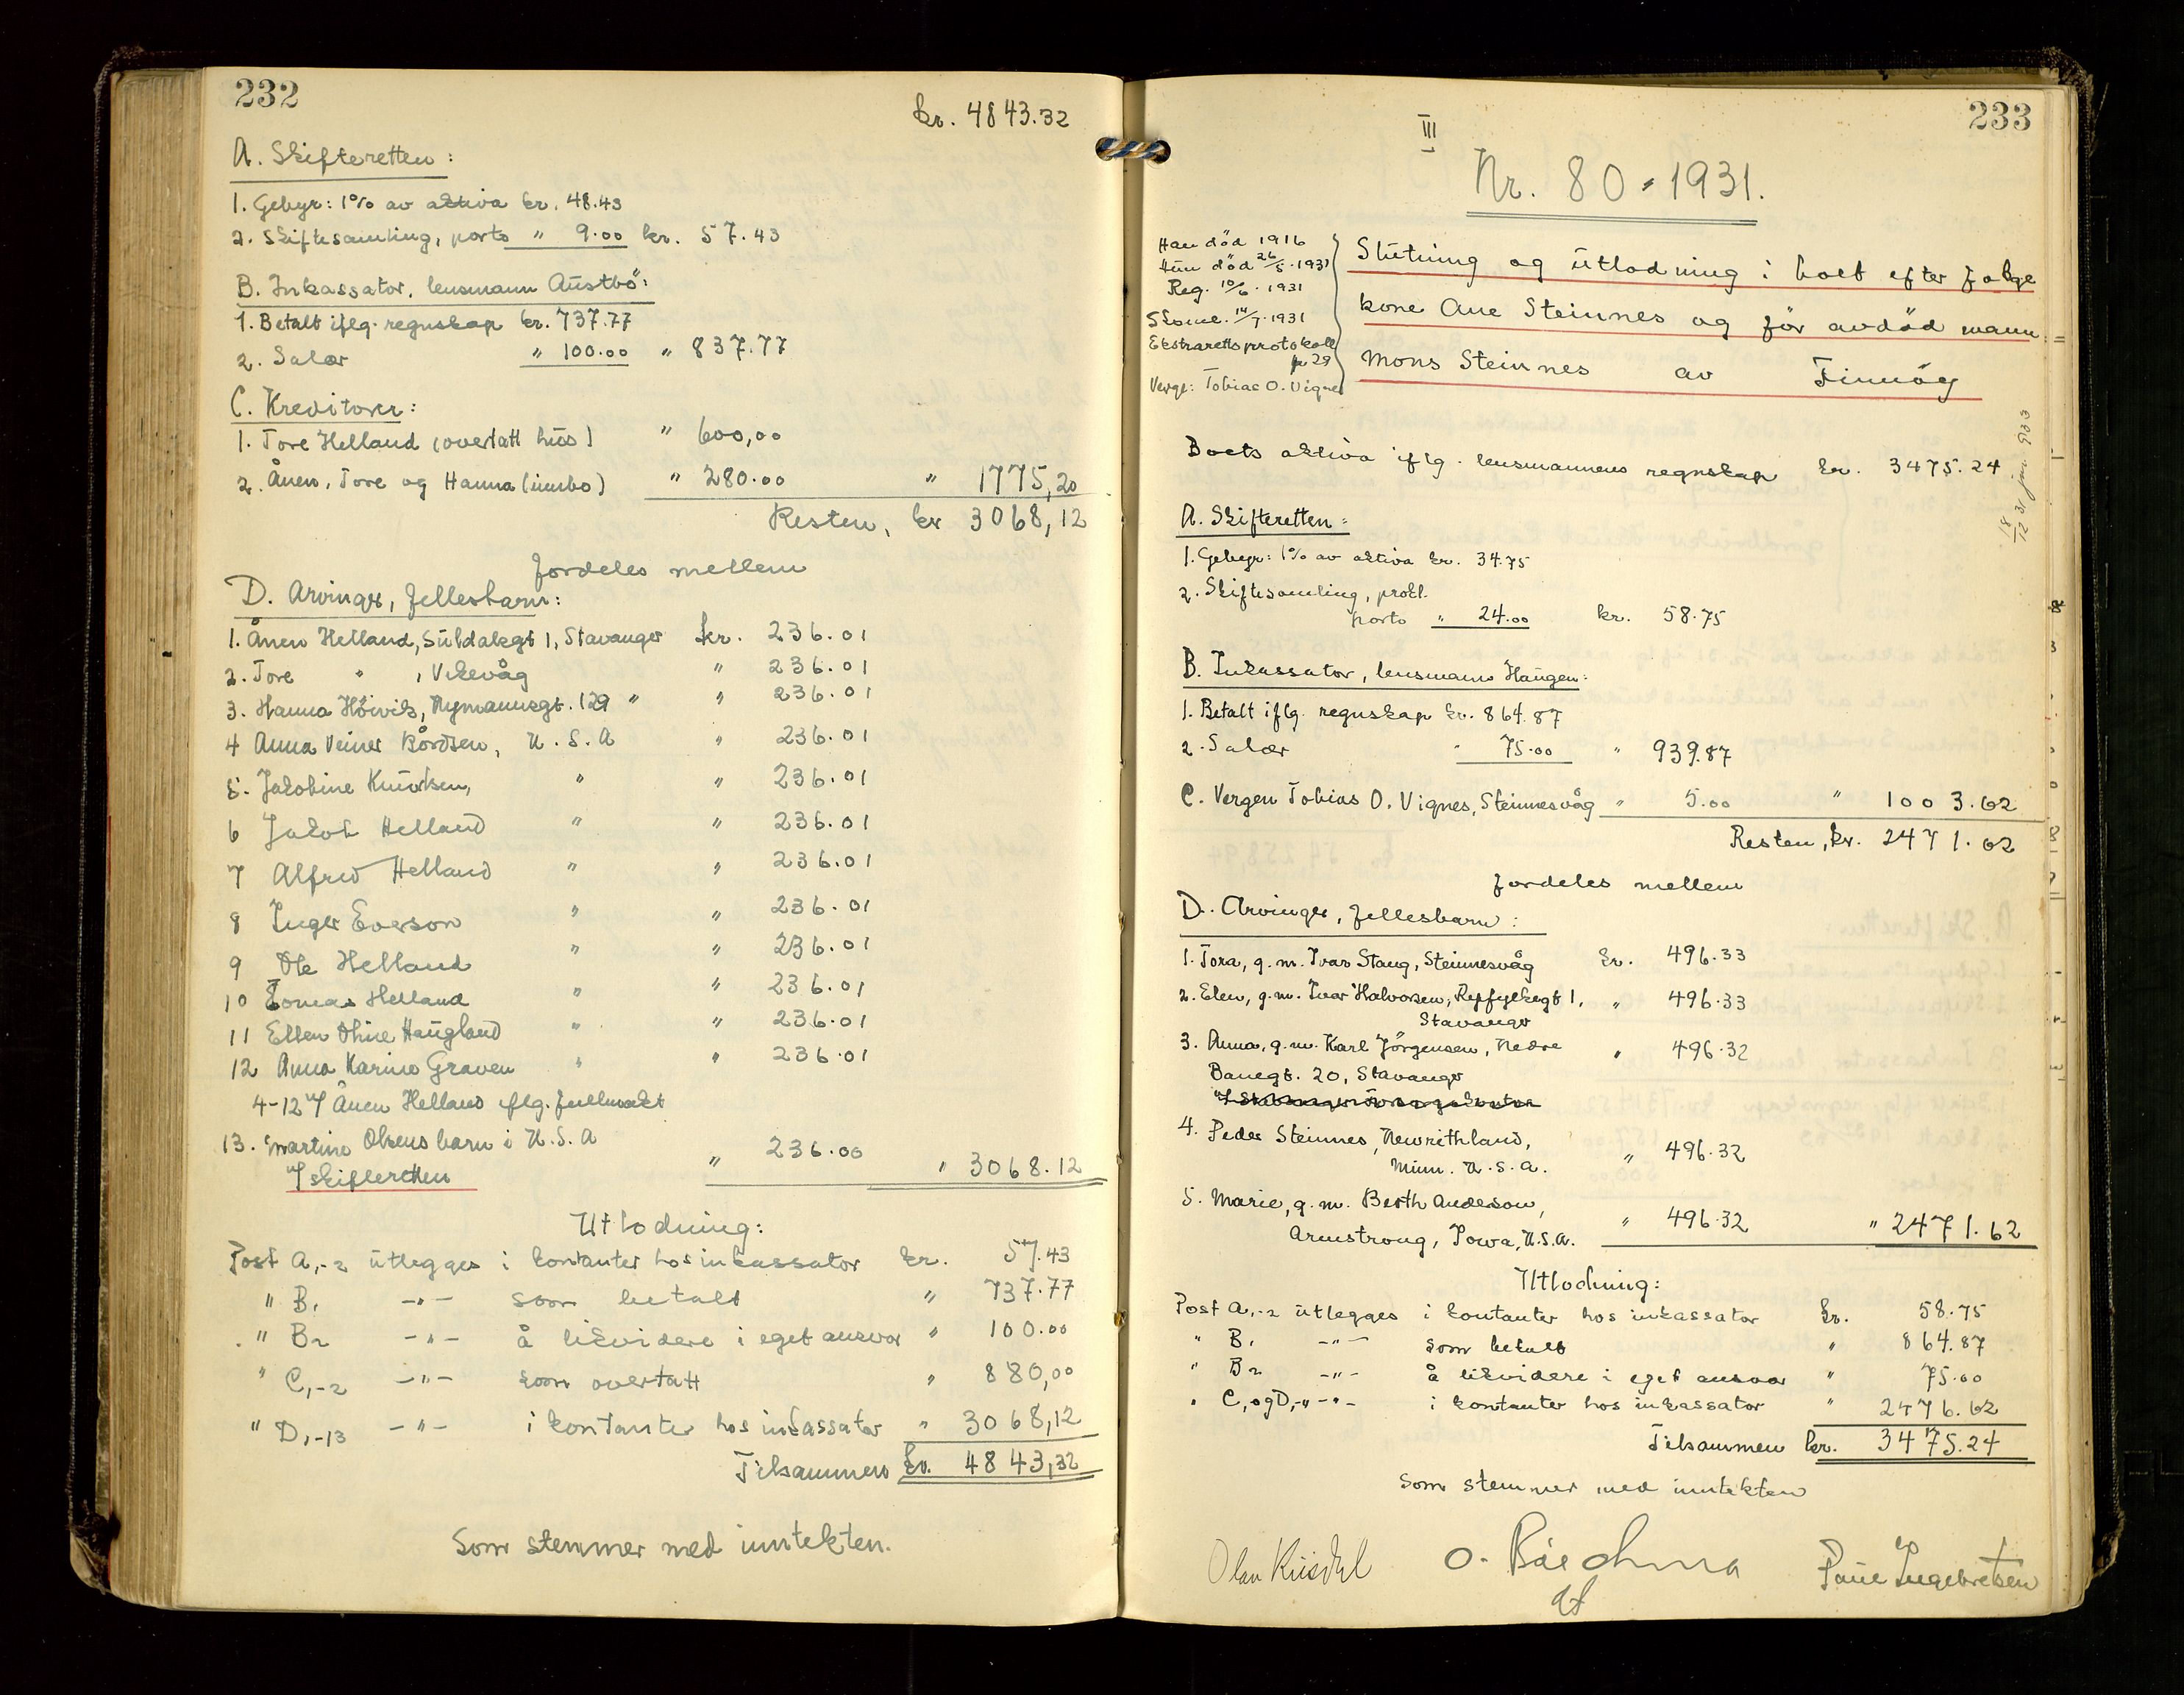 232
kr. 4843.32
A. Skifteretten:
1. Gebyr: 1% av aktiva kr. 48.43
2. Skiftesamling, porto " 9.00 kr. 57.43
B. Inkassator, lensmann Austbö:
1. Betalt iflg. regnskap kr. 737.77
2. Salær " 100.00 " 837.77
C. Kreditorer:
1. Tore Helland (overtatt hus) " 600,00
2. Ånen, Tore og Hanna (innbo) " 280.00 " 1775,20
Resten, kr 3068,12
fordeles mellem
D. Arvinger, fellesbarn:
1. Ånen Helland, Suldalsgt 1, Stavanger kr. 236.01
2. Tore " , Vikevåg " 236.01
3. Hanna Höivik, Nymannsgt. 129 " " 236.01
4 Anna Veiner Bårdsen, U.S.A " 236.01
5. Jakobine Knudsen, " " 236.01
6 Jakob Helland " " 236.01
7 Alfred Helland " " 236.01
8 Inger Everson " " 236.01
9 Ole Helland " " 236.01
10 Tomas Helland " " 236.01
11 Ellen Oline Haugland " " 236.01
12 Anna Karine Graven " " 236.01
4-12 v/ Ånen Helland iflg. fullmakt
13. Martine Olsens barn i U.S.A " 236.00 " 3068.12
v/ skifteretten
Utlodning:
Post A,-2 utlegges i kontanter hos inkassator kr. 57.43
" B, -"- som betalt " 737.77
" B2 -"- å likvidere i eget ansvar " 100.00
" C,-2 -"- som overtatt " 880,00
" D,-13 -"- i kontanter hos inkassator " 3068,12
Tilsammen kr. 4843,32
Som stemmer med inntekten.
233
III
Nr. 80 - 1931.
Han död 1916
Hun död 26/5.1931
Reg. 10/6.1931
Sksml. 14/7.1931
Ekstrarettsprotokoll
p 29
Verge: Tobias O. Vignes
Slutning og utlodning i boet efter folge
kone Ane Steinnes og för avdöd mann
Mons Steinnes av Finnöy
18/12 31 jnr. 903
Boets aktiva iflg. lensmannens regnskap kr. 3475.24
A. Skifteretten:
1. Gebyr: 1% av aktiva kr. 34.75
2. Skiftesamling, prokl.
porto " 24.00 kr. 58.75
B. Inkassator, lensmann Haugen:
1. Betalt iflg. regnskap kr. 864.87
2. Salær " 75.00 " 939.87
C. Vergen Tobias O. Vignes, Steinnesvåg " 5.00 " 1003.62
Resten, kr. 2471.62
fordeles mellem
D. Arvinger, fellesbarn:
1. Tora, g.m. Ivar Stang, Steinnesvåg kr. 496.33
2. Elen, g.m. Ivar Halvorsen, Ryfylkegt 1, " 496.33
Stavanger
3. Anna, g.m. Karl Jörgensen, Nedre " 496.32
Banegt. 20, Stavanger
4. Peder Steinnes, Newrithland,
Minn. U.S.A. " 496.32
5. Marie, g.m. Berth Anderson,
Armstrong, Iowa, U.S.A. " 496.32 " 2471.62
Utlodning:
Post A,-2 utlegges i kontanter hos inkassator kr. 58.75
" B, -"- som betalt " 864.87
" B2 -"- å likvidere i eget ansvar " 75.00
" C, og D,-"- -"- i kontanter hos inkassator " 2476.62
Tilsammen kr. 3475.24
Som stemmer med inntekten